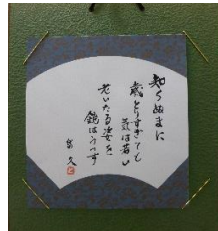 知らぬまに
歳とりすぎても
気は若い
老いたる姿を
鏡はうつす